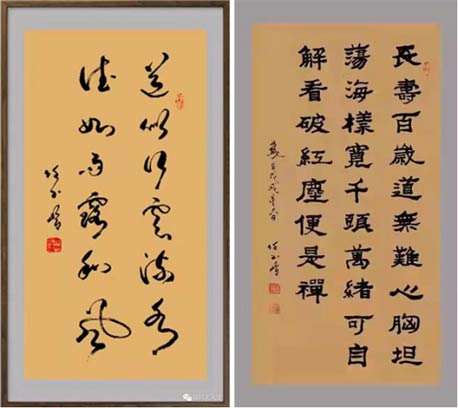 道似行雲流水
德如甘露和風
長壽百歲道無難心胸坦
蕩海樣寬千頭萬緒可自
解看破紅塵便是禪